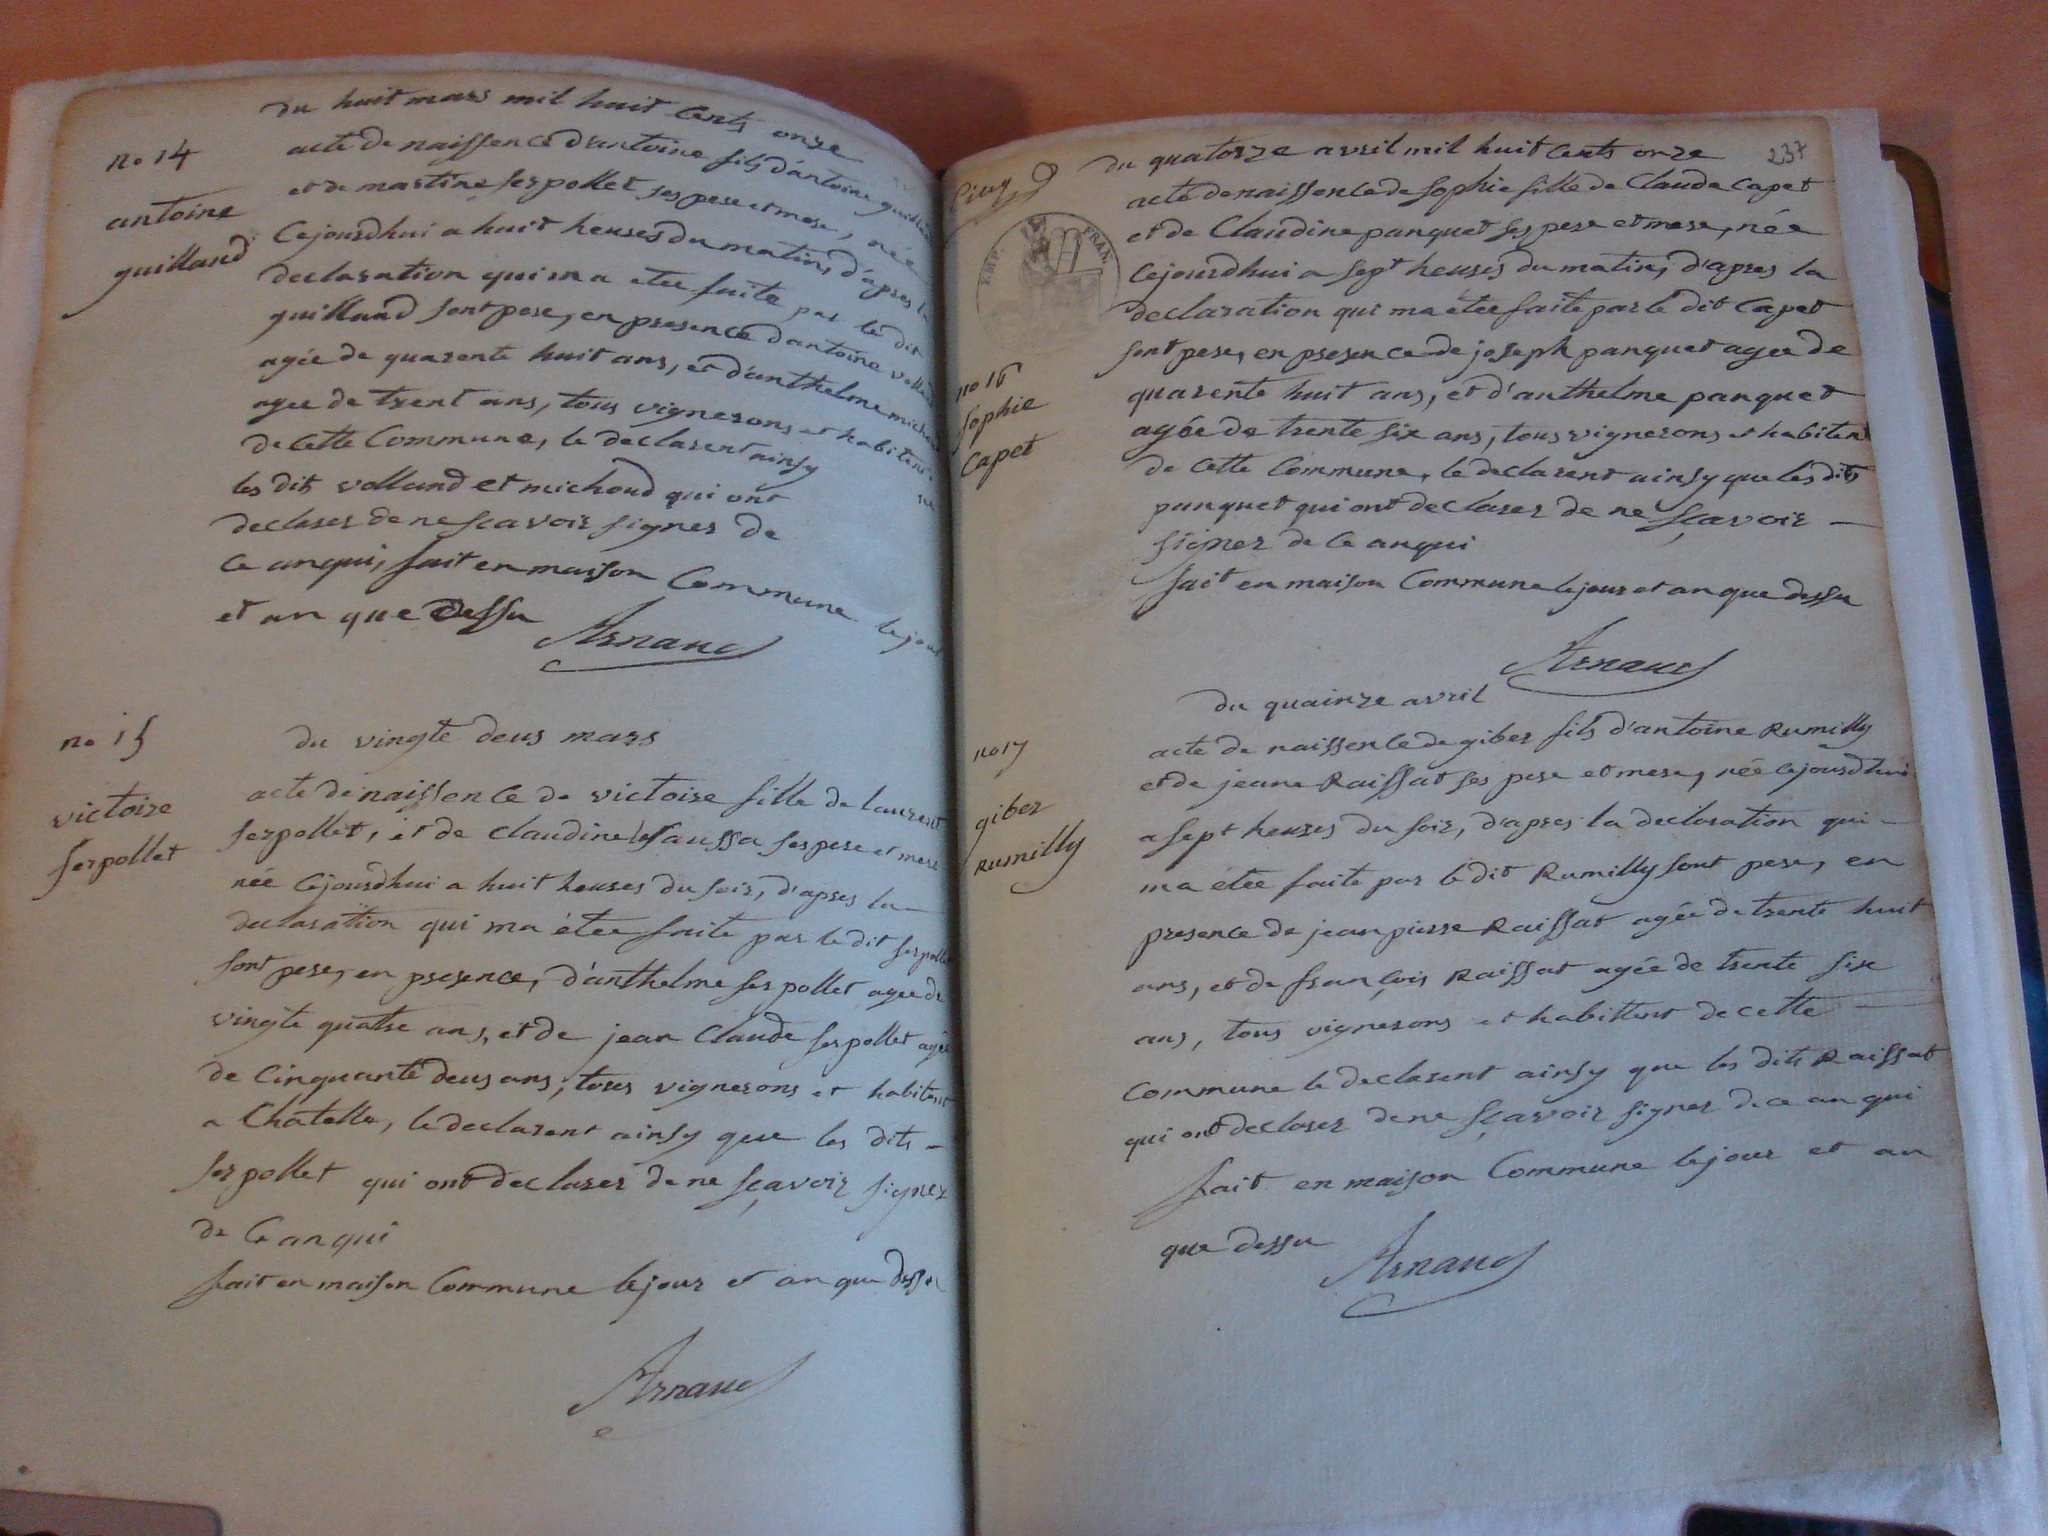 du huit mars mil huit Cents onze
no 14
antoine
guilland
acte de naissence d'antoine fils d'antoine
et de martine serpollet ses pere et mere, née
Cejourdhui a huit heures du matins, d'apres la
declaration qui m a etee faite par le dit
guilland sont pere, en presence d'antoine
agée de quarente huit ans, et d'anthelme
agee de trent ans, tous vignerons et habitent
de Cette Commune, le declarent ainsy
les dits volland et michoud qui ont
declarer de ne scavoir signer de
Ce anqui, fait en maison Commune le jour
et an que dessu
Arnaud
no 15
victoire
serpollet
du vingte deus mars
acte de naissence de victoire fille de laurent
serpollet, et de Claudine saussa ses pere et mere
née Cejourdhui a huit heures du soir, d'apres la
declaration qui ma étee faite par le dit serpollet
sont pere, en presence, d'anthelme serpollet agee de
vingte quatre ans, et de jean Claude serpollet agée
de Cinquante deus ans, tous vignerons et habitent
a Chatelle, le declarent ainsy que les dits
serpollet qui ont declarer de ne sçavoir signer
de Ce anqui
fait en maison Commune le jour et an que dessu
Arnaud
237
Cinq
IMP. FRAN.
du quatorze avril mil huit Cents onze
acte de naissence de sophie fille de Claude Capet
et de Claudine panquet ses pere et mere, née
Cejourdhui a sept heures du matin, d'apres la
declaration qui ma étee faite par le dit Capet
sont pere, en presence de joseph panquet agee de
no 16
sophie
Capet
quarente huit ans, et d'anthelme panquet
agée de trente six ans, tous vignerons et habitent
de Cette Commune, le declarent ainsy que les dits
panquet qui ont declarer de ne sçavoir
signer de Ce anqui
fait en maison Commune le jour et an que dessu
Arnaud
du quainze avril
no 17
giber
Rumilly
acte de naissence de giber fils d'antoine Rumilly
et de jeane Raissat ses pere et mere, née Cejourdhui
a sept heures du soir, d'apres la declaration qui
ma étee faite par le dit Rumilly sont pere, en
presence de jean pierre Raissat agée de trente huit
ans, et de françois Raissat agée de trente six
ans, tous vignerons et habittent de Cette
Commune le declarent ainsy que les dits Raissat
qui ont declarer de ne sçavoir signer de Ce an qui
fait en maison Commune le jour et an
que dessu
Arnaud